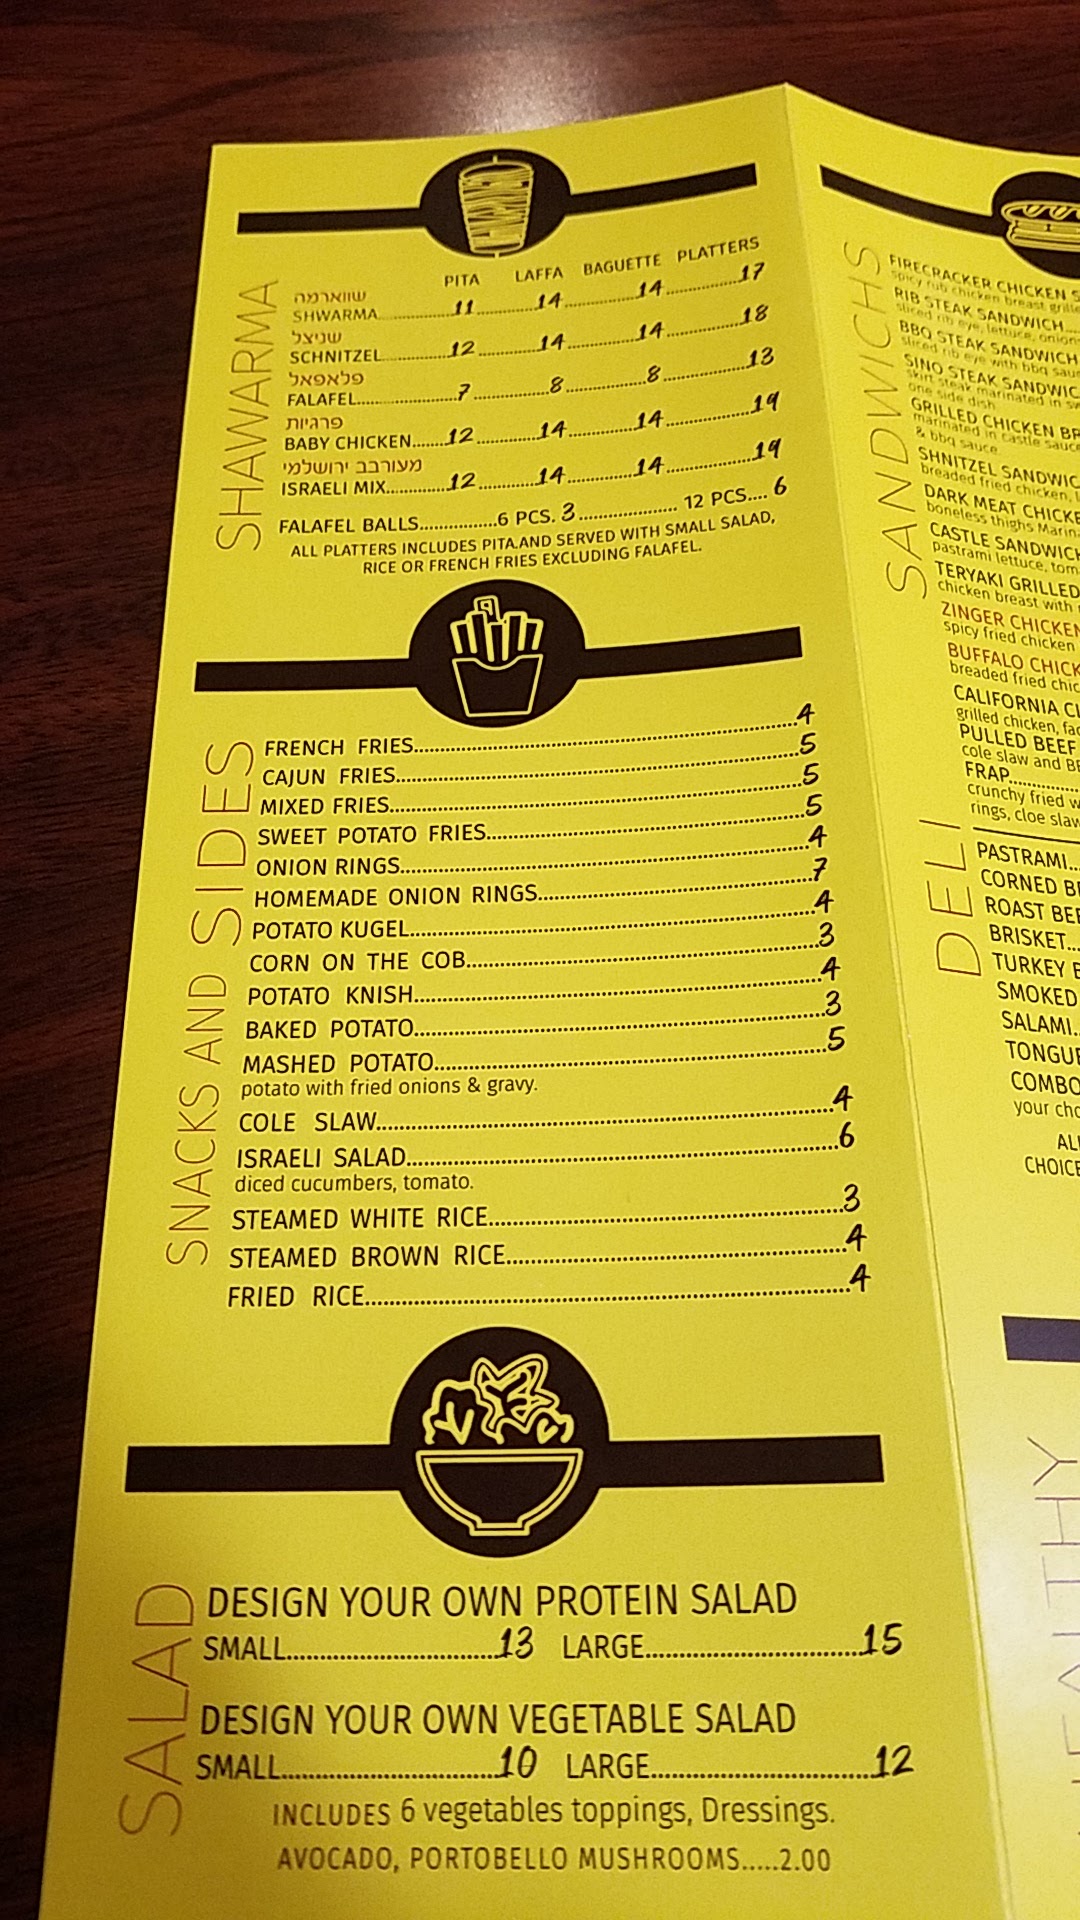 SHAWARMA
PITA LAFFA BAGUETTE PLATTERS
שווארמה
SHWARMA 11 14 14 17
שניצל
SCHNITZEL 12 14 14 18
פלאפאל
FALAFEL 7 8 8 13
פרגיות
BABY CHICKEN 12 14 14 19
מעורבב ירושלמי
ISRAELI MIX 12 14 14 19
FALAFEL BALLS 6 PCS. 3 12 PCS. 6
ALL PLATTERS INCLUDES PITA.AND SERVED WITH SMALL SALAD,
RICE OR FRENCH FRIES EXCLUDING FALAFEL.
SNACKS AND SIDES
FRENCH FRIES 4
CAJUN FRIES 5
MIXED FRIES 5
SWEET POTATO FRIES 5
ONION RINGS 4
HOMEMADE ONION RINGS 7
POTATO KUGEL 4
CORN ON THE COB 3
POTATO KNISH 4
BAKED POTATO 3
MASHED POTATO 5
potato with fried onions & gravy.
COLE SLAW 4
ISRAELI SALAD 6
diced cucumbers, tomato.
STEAMED WHITE RICE 3
STEAMED BROWN RICE 4
FRIED RICE 4
SALAD
DESIGN YOUR OWN PROTEIN SALAD
SMALL 13 LARGE 15
DESIGN YOUR OWN VEGETABLE SALAD
SMALL 10 LARGE 12
INCLUDES 6 vegetables toppings, Dressings.
AVOCADO, PORTOBELLO MUSHROOMS.....2.00
SANDWICHS
FIRECRACKER CHICKEN
spicy rub chicken breast
RIB STEAK SANDWICH
sliced rib eye, lettuce,
BBQ STEAK SANDWICH
sliced rib eye with bbq
SINO STEAK
skirt steak marinated in
one side dish
GRILLED CHICKEN
marinated in castle
& bbq sauce
SHNITZEL
breaded fried chicken,
DARK MEAT
boneless thighs
CASTLE
pastrami lettuce,
TERYAKI GRILLED
chicken breast with
ZINGER
spicy fried chicken
BUFFALO
breaded fried
CALIFORNIA
grilled chicken,
PULLED BEEF
cole slaw and
FRAP
crunchy fried
rings, cloe
DELI
PASTRAMI
CORNED
ROAST
BRISKET
TURKEY
SMOKED
SALAMI
TONGUE
COMBO
your